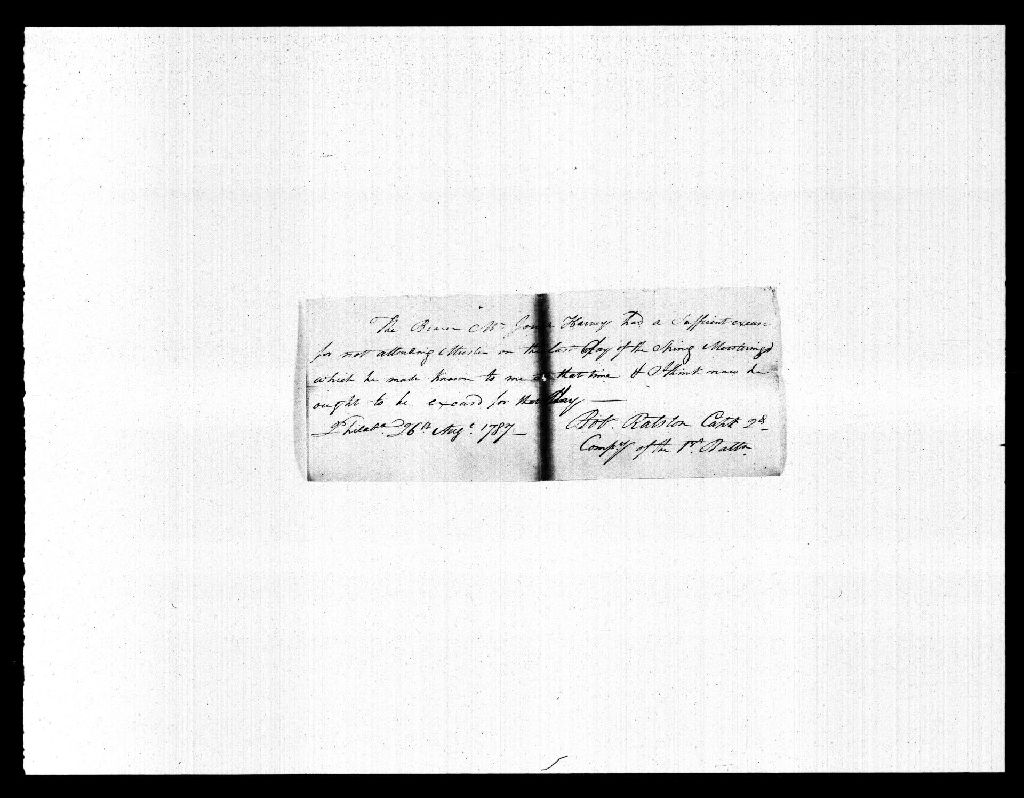 The Bearer Mr. Harvey had a Suffient excuse
for not attending Muster on the last Day of the Spring Mustering
which he made known to me at that time & I think now he
ought to be excused for that Day —
Philada. 26th Augt. 1787 —
Robt. Ralston Capt 2d
Compy of the 1st Battn.